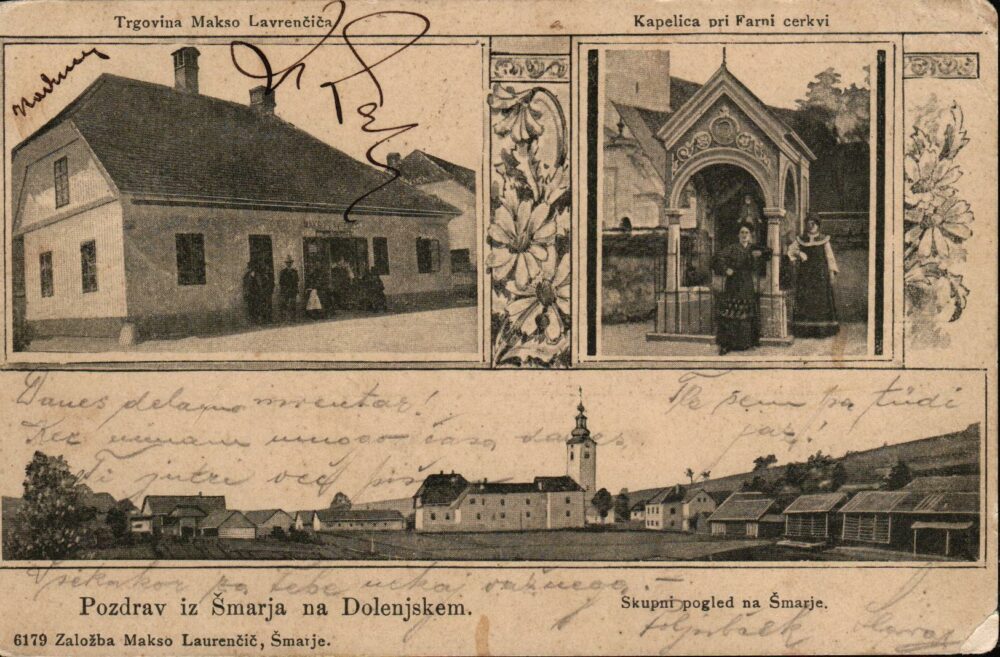 Trgovina Makso Lavrenčiča
Kapelica pri Farni cerkvi
Danes delamo inventar!
Ker nimam mnogo časa danes,
ti jutri več
Tle sem pa tudi
jaz!
Vsekakor pa tebe nekaj važnega. –
Pozdrav iz Šmarja na Dolenjskem.
Skupni pogled na Šmarje.
6179 Založba Makso Laurenčič, Šmarje.